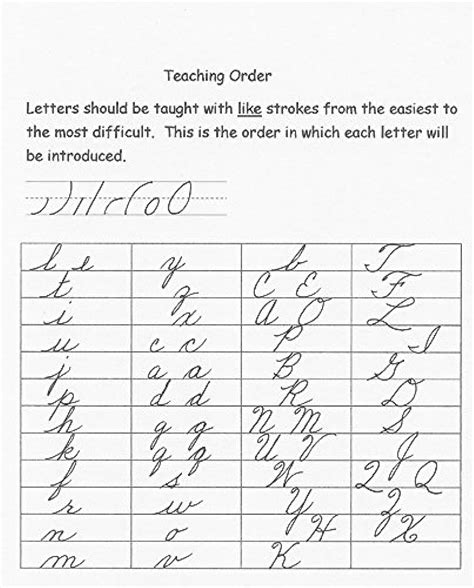 Teaching Order
Letters should be taught with like strokes from the easiest to
the most difficult. This is the order in which each letter will
be introduced.
l e y b T
t z C E F
i x A O L
u c c P I
j a a B G
p d d R D
h g g N M S
k q q U V J
f s W Q Q
r w Y Z
n o H X
m v K